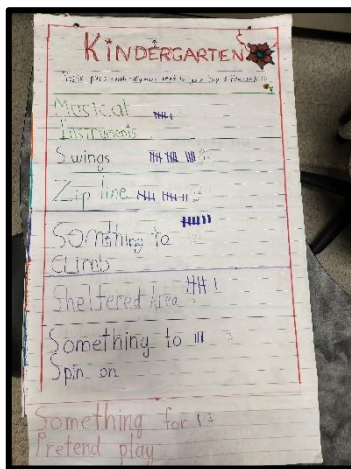 KINDERGARTEN
Musical
Instruments
Swings
Zip line
Somthing to
CLimb
Sheltered Area
Something to
Spin on
Something for
Pretend play